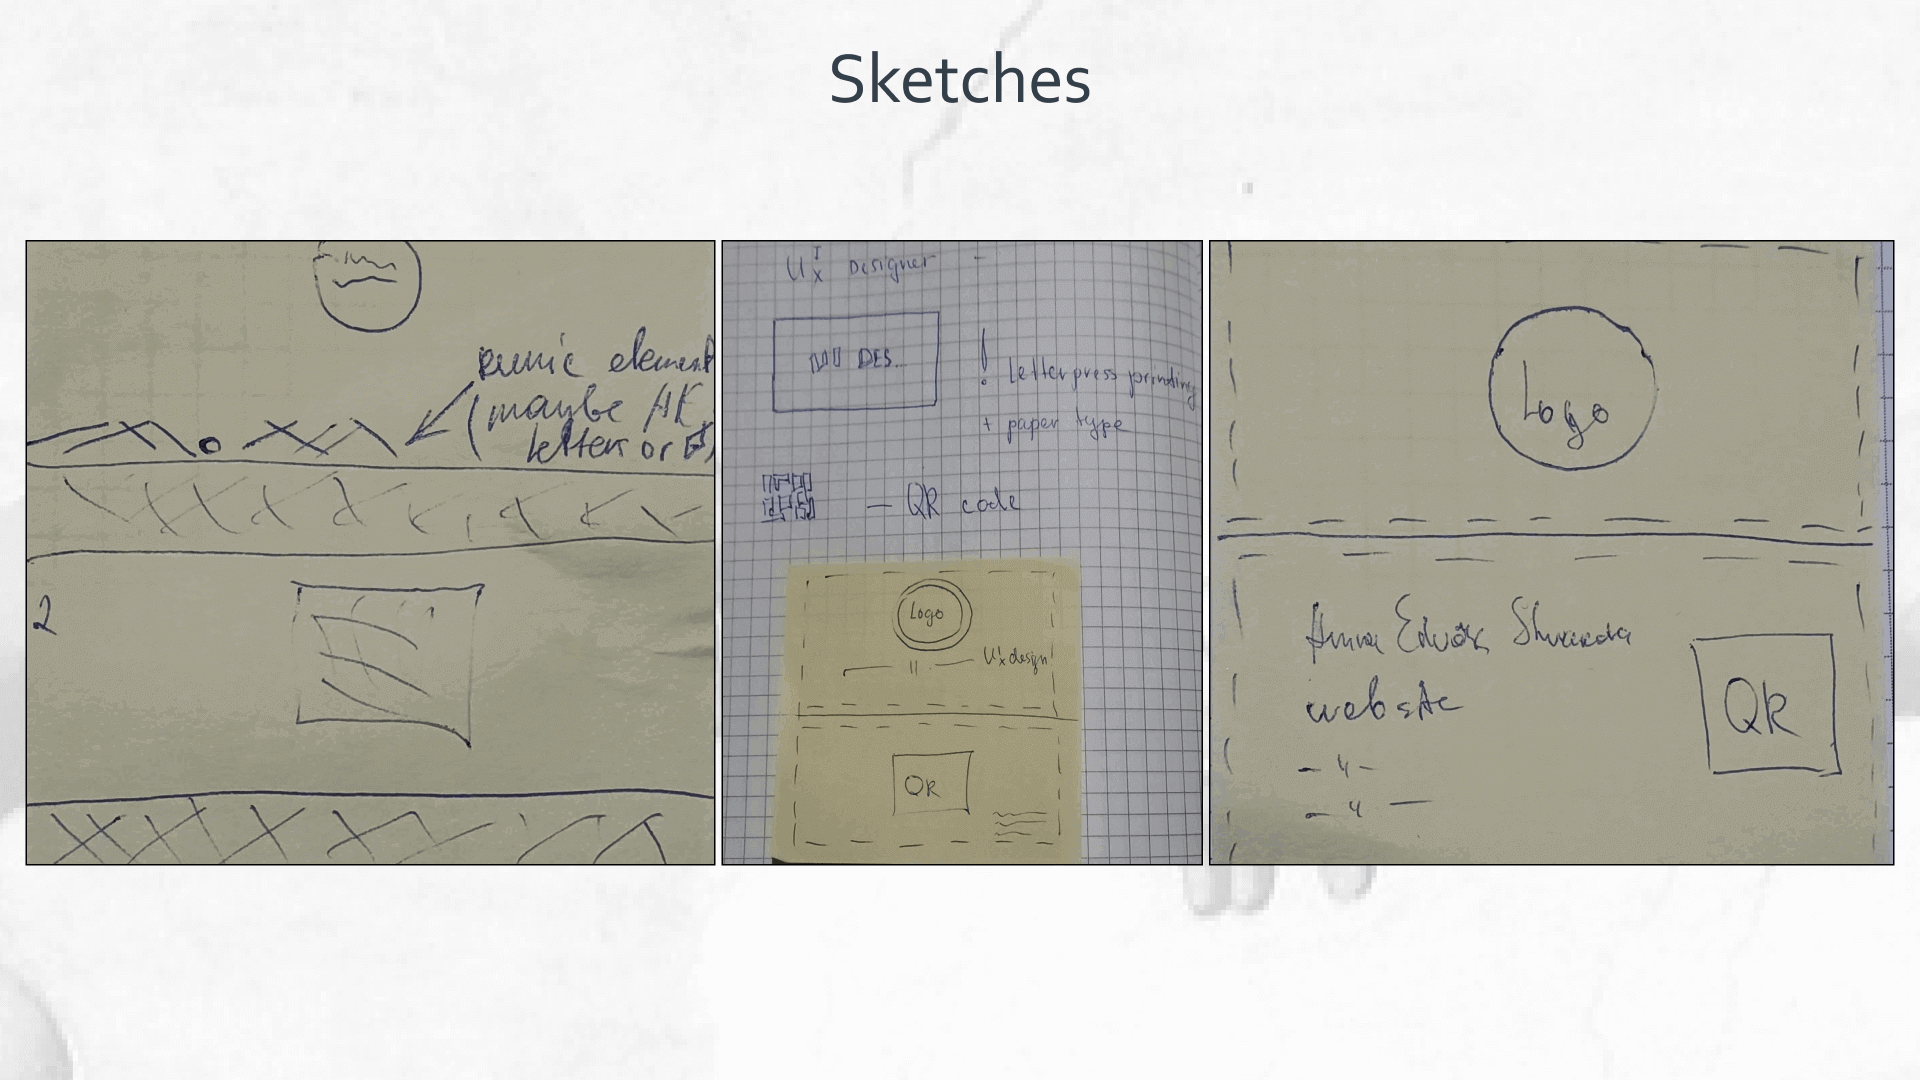 Sketches
runic element
(maybe AK
letter or
2
UIX Designer -
DES...
! Letterpress printing
+ paper type
— QR code
Logo
— 11 — UIX design
QR
Logo
Anna
website
- 4 -
- 4 —
QR